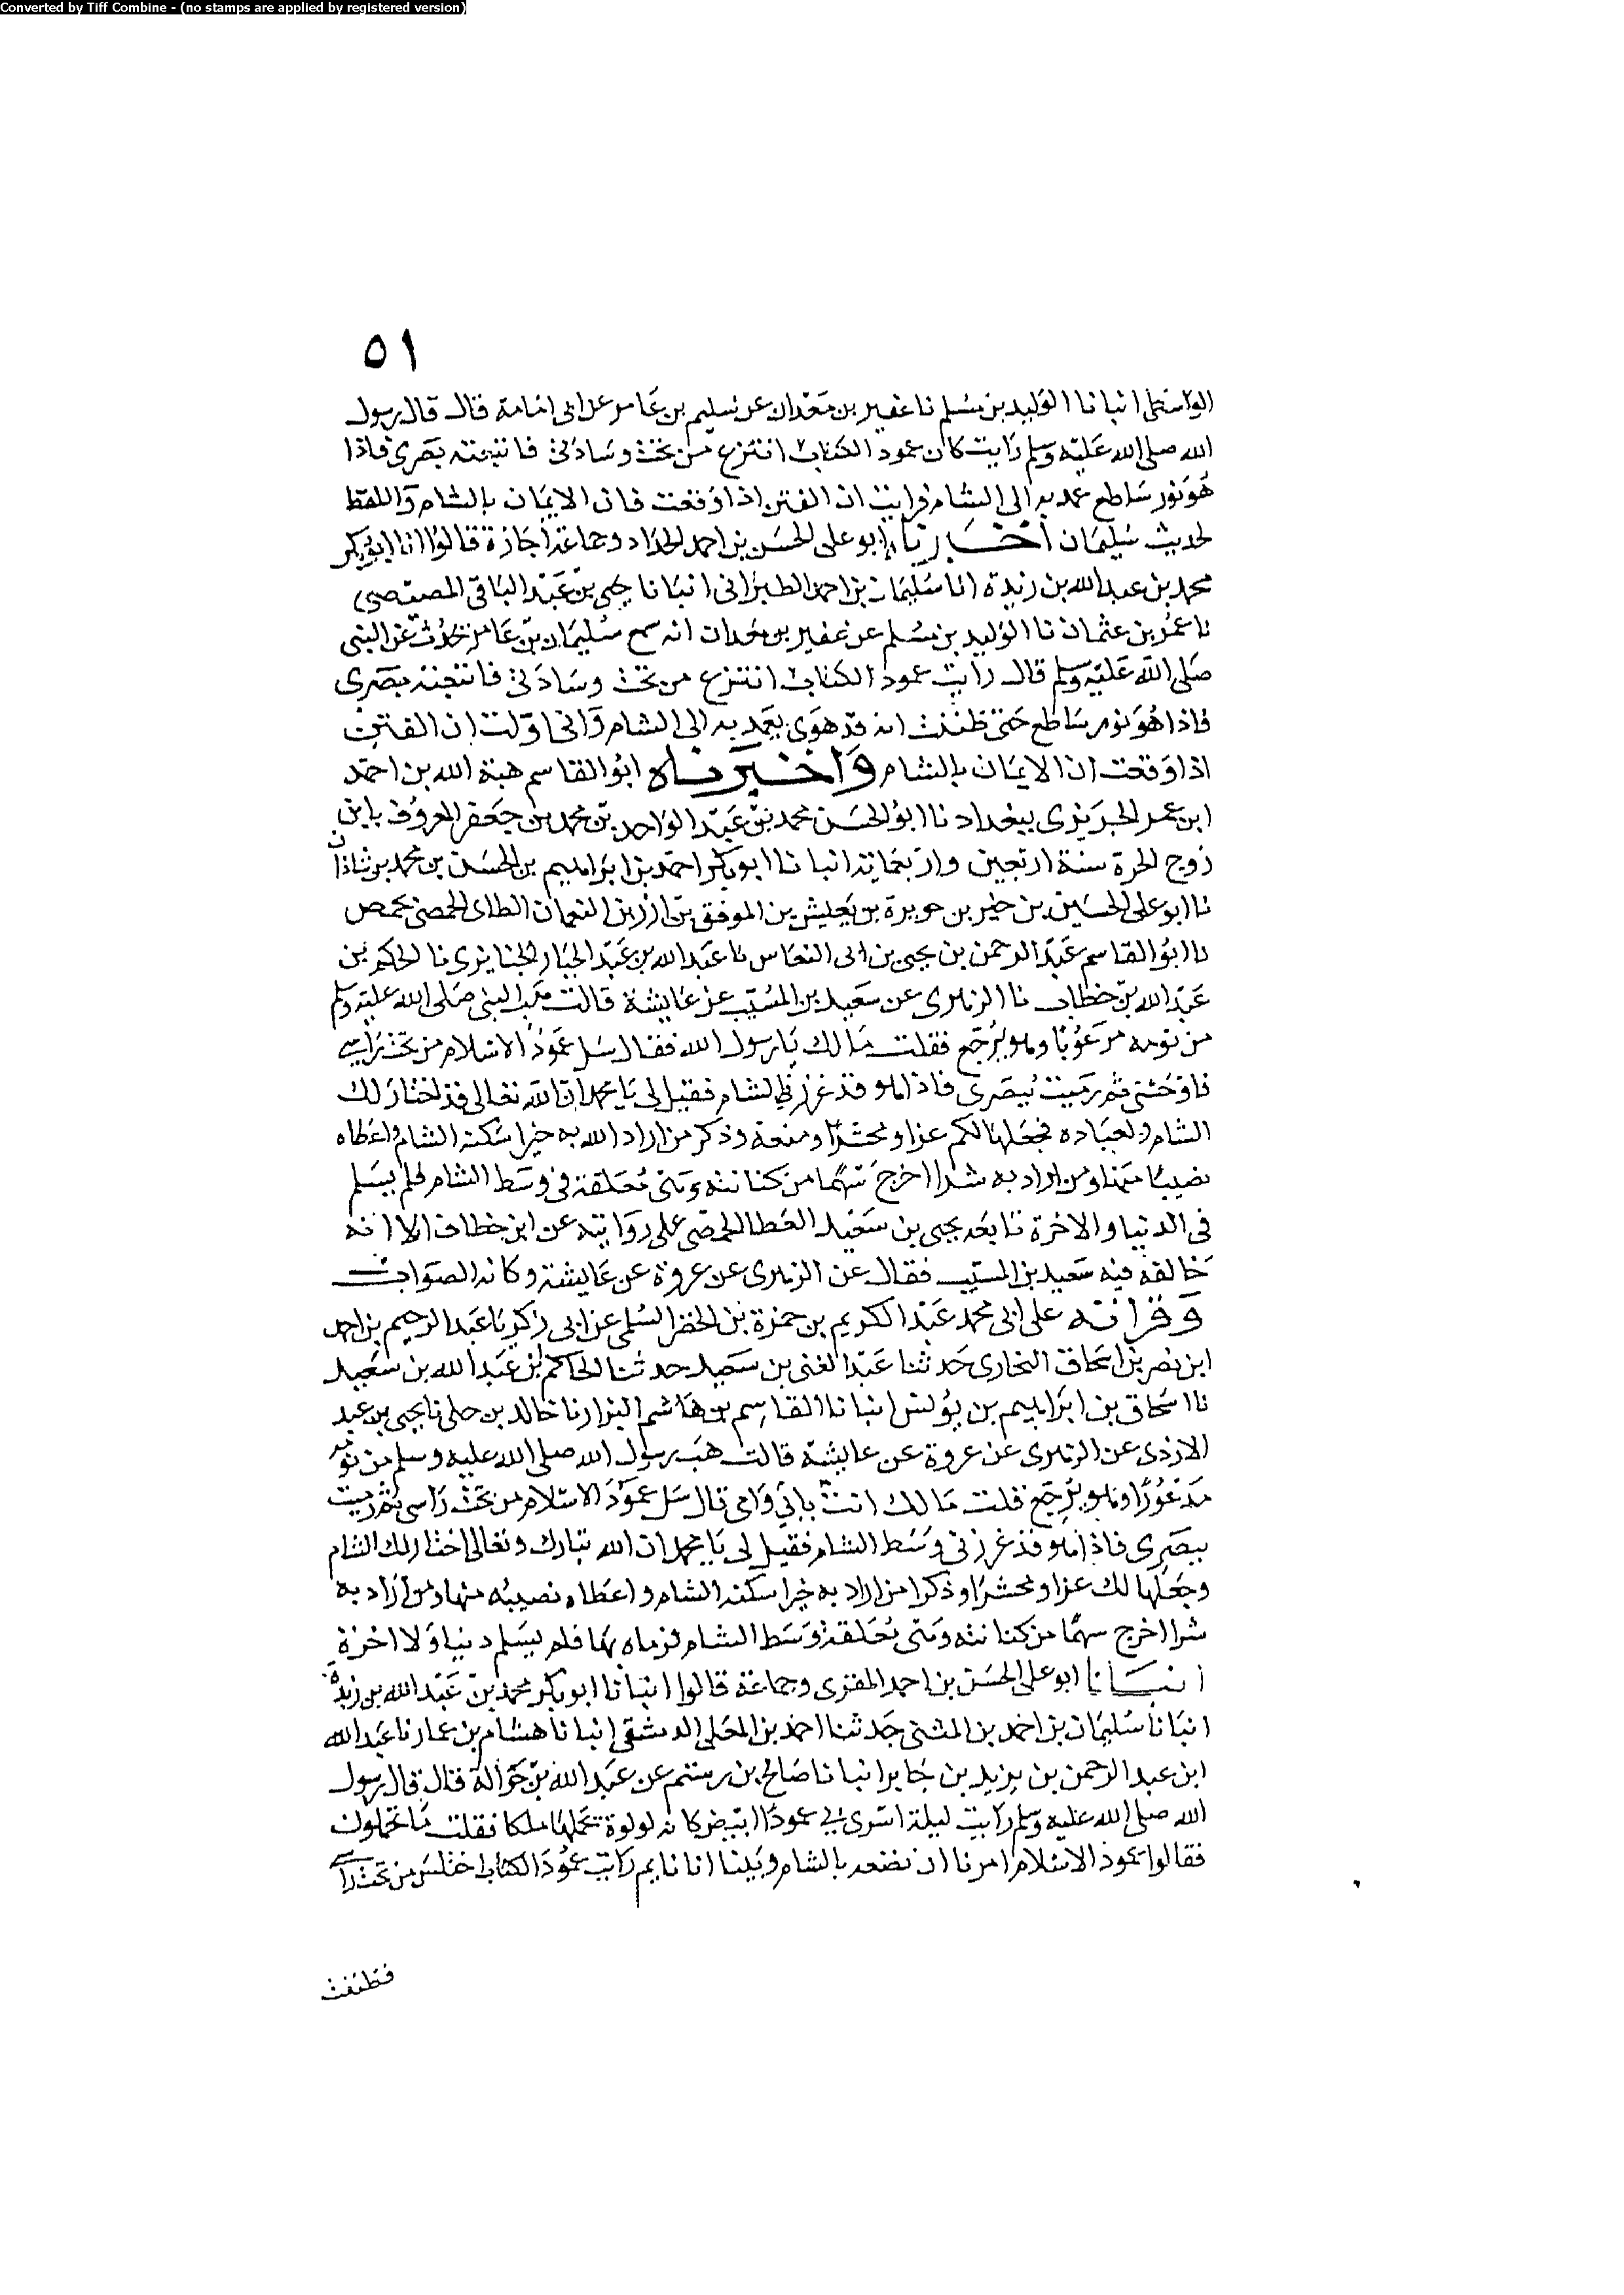 Converted by Tiff Combine - (no stamps are applied by registered version)
٥١
الواسطى انبانا الوليد بن مسلم نا عفير بن معدان عن سليم بن عامر عن ابى امامة قال قال رسول
الله صلى الله عليه وسلم رايت كان عمود الكتاب انتزع من تحت وسادتى فاتبعته بصرى فاذا
هو نور ساطع عمد به الى الشام فرايت ان الفتن اذا وقعت فان الايمان بالشام واللفظ
لحديث سليمان اخبرنا ابو على الحسن بن احمد الحداد وجماعة اجازة قالوا انا ابو بكر
محمد بن عبد الله بن ريذة انا سليمان بن احمد الطبرانى انبانا يحيى بن عبد الباقى المصيصى
نا عمر بن عثمان نا الوليد بن مسلم عن عفير بن معدان انه سمع سليمان بن عامر يحدث عن النبى
صلى الله عليه وسلم قال رايت عمود الكتاب انتزع من تحت وسادتى فاتبعته بصرى
فاذا هو نور ساطع حتى ظننت انه قد هوى يعمد به الى الشام وانى اولت ان الفتن
اذا وقعت ان الايمان بالشام واخبرناه ابو القاسم هبة الله بن احمد
ابن عمر الحريرى ببغداد نا ابو الحسن محمد بن عبد الواحد بن محمد بن جعفر المعروف بابن
زوج الحرة سنة اربعين واربعماية انبانا ابو بكر احمد بن ابراهيم بن الحسن بن محمد بن شاذان
نا ابو على الحسين بن خير بن حويرة بن يعيش بن الموفق بن ازر بن النعمان الطاى الحمصى بحمص
نا ابو القاسم عبد الرحمن بن يحيى بن ابى النعاس نا عبد الله بن عبد الجبار الخبايرى نا الحكم بن
عبد الله بن خطاف نا الزهرى عن سعيد بن المسيب عن عايشة قالت هب النبى صلى الله عليه وسلم
من نومه مرعوبا وهو يرجع فقلت مالك يا رسول الله فقال سل عمود الاسلام من تحت راسى
فاوحشنى ثم رميت ببصرى فاذا هو قد غرز فى الشام فقيل لى يا محمد ان الله تعالى قد اختار لك
الشام ولعباده فجعلها لكم عزا ومحشرا ومنعة وذكر من اراد الله به خيرا سكنه الشام واعطاه
نصيبا منها ومن اراد به شرا اخرج سهما من كنانته وهى معلقة فى وسط الشام فلم يسلم
فى الدنيا والاخرة تابعه يحيى بن سعيد العطار الحمصى على روايته عن ابن خطاف الا انه
خالفه فيه سعيد بن المسيب فقال عن الزهرى عن عروة عن عايشة وكانه الصواب
وقراته على ابى محمد عبد الكريم بن حمزة بن الخضر السلمى عن ابى زكريا عبد الرحيم بن احمد
ابن نصر بن اسحاق البخارى حدثنا عبد الغنى بن سعيد حدثنا الحاكم بن عبد الله بن سعيد
نا اسحاق بن ابراهيم بن يونس انبانا القاسم بن هاشم البزار نا خالد بن خلى نا يحيى بن عبد
الازدى عن الزهرى عن عروة عن عايشة قالت هب رسول الله صلى الله عليه وسلم من نومه
مذعورا وهو يرجع قلت مالك انت بابى وامى قال سل عمود الاسلام من تحت راسى ثم رميت
ببصرى فاذا هو قد غرز فى وسط الشام فقيل لى يا محمد ان الله تبارك وتعالى اختار لك الشام
وجعلها لك عزا ومحشرا وذكرا من اراد به خيرا سكنه الشام واعطاه نصيبه منها ومن اراد به
شرا اخرج سهما من كنانته وهى معلقة وسط الشام فرماه بها فلم يسلم دنيا ولا اخرة
انبانا ابو على الحسن بن احمد المقرى وجماعة قالوا انبانا ابو بكر محمد بن عبد الله بن ريذة
انبانا سليمان بن احمد بن المثنى حدثنا احمد بن المعلى الدمشقى انبانا هشام بن عمار نا عبد الله
ابن عبد الرحمن بن يزيد بن جابر انبانا صالح بن رستم عن عبد الله بن حوالة قال قال رسول
الله صلى الله عليه وسلم رايت ليلة اسرى بى عمودا ابيض كانه لولوة تحملها ملكا فقلت ما تحملون
فقالوا عمود الاسلام امرنا ان نضعه بالشام وبينا انا نايم رايت عمود الكتاب اختلس من تحت راسى
فظننت